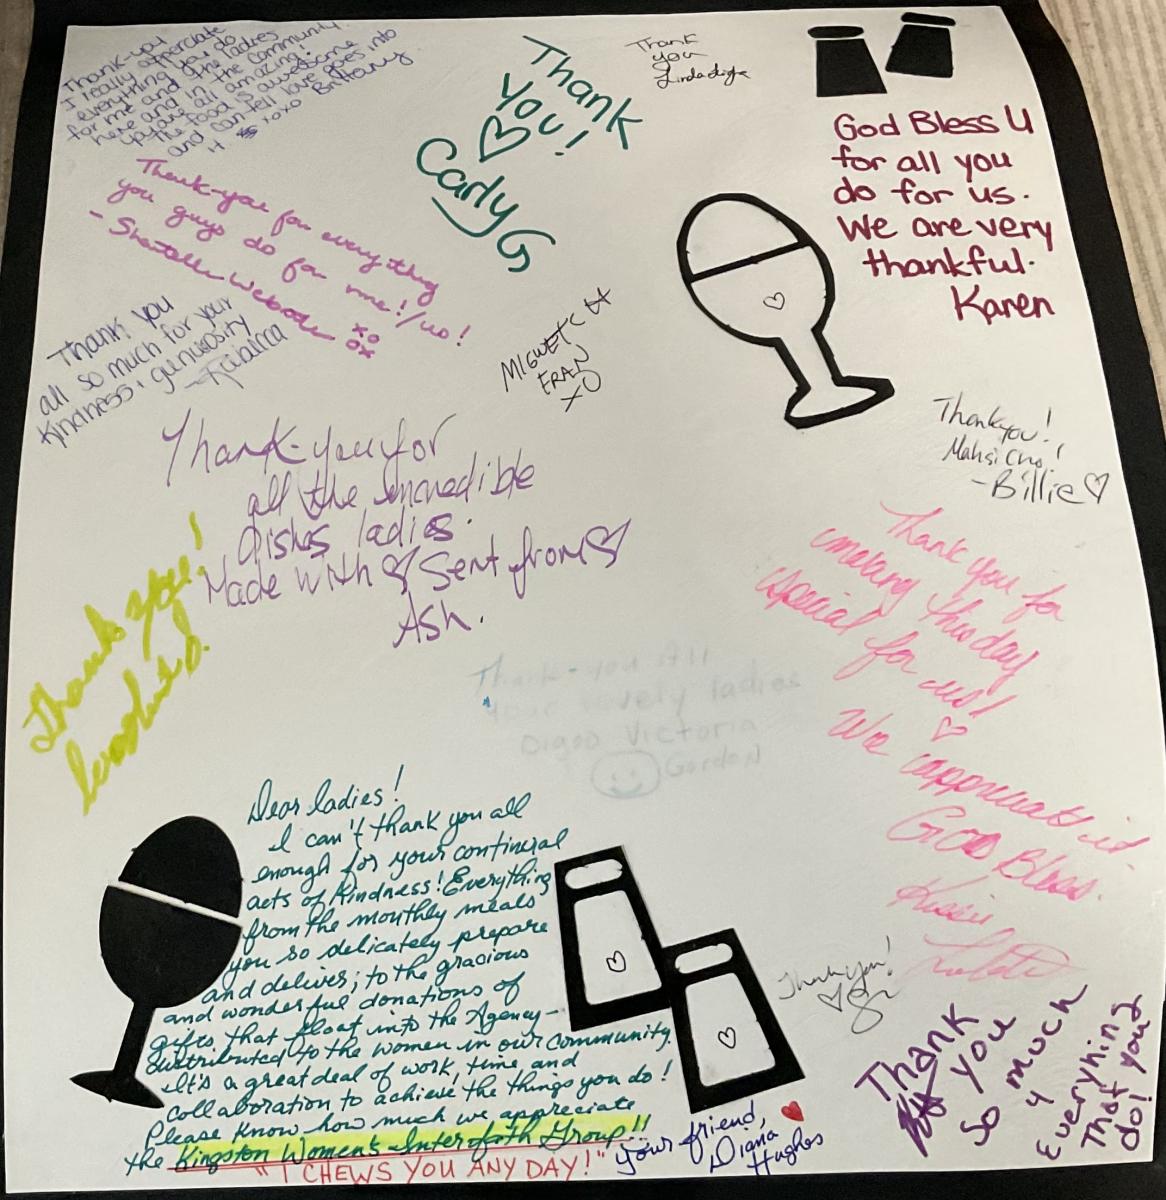 Thank-you
I really apperciate
everything you do
for me and the ladies
here and in the community.
You are all amazing!
The food is awesome
and can tell love goes into
it xoxo Brittany
Thank
you!
Carly G
Thank
you
God Bless U
for all you
do for us.
We are very
thankful.
Karen
Thank-you for everything
you guys do for me! / us!
xo
ox
Thank you
all so much for your
kindness & generosity
MIGWETCH
FRAN
XO
Thankyou!
Mahsi Cho!
- Billie
Thank-you for
all the incredible
Dishes ladies.
Made with Sent from
Ash.
Thank you!
Thank you for
making this day
special for us!
We appreciate it.
God Bless.
Thank-you All
your lovely ladies
Digao Victoria
Gordon
Dear ladies!
I can't thank you all
enough for your contineral
acts of kindness! Everything
from the monthly meals
you so delicately prepare
and deliver; to the gracious
and wonderful donations of
gifts that float into the Agency -
distributed to the women in our community.
It's a great deal of work, time and
collaboration to achieve the things you do!
Please know how much we appreciate
the Kingston Women's Interfaith Group!!
"I CHEWS YOU ANY DAY!"
your friend,
Diana
Hughes
Thank you!
Thank
you
So much
4
Everything
That you
do!